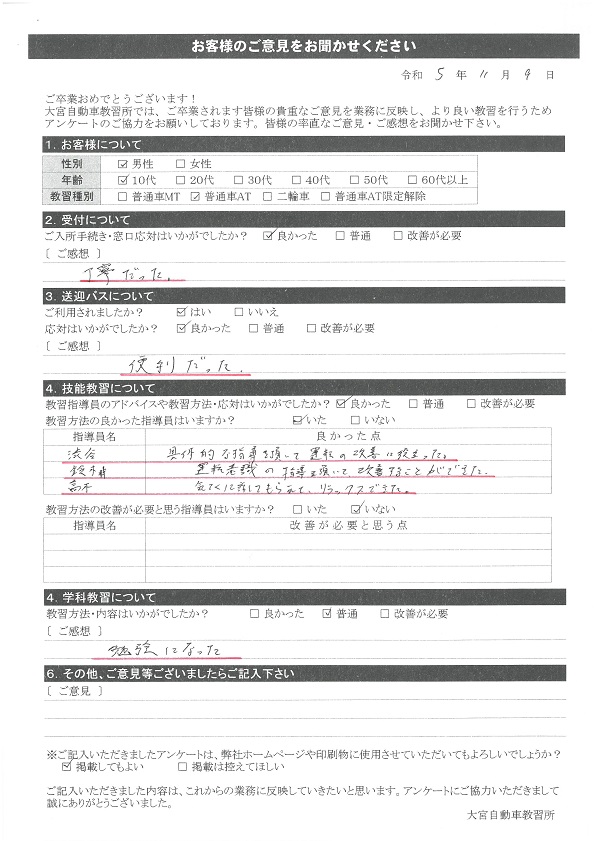 お客様のご意見をお聞かせください
令和 5 年 11 月 9 日
ご卒業おめでとうございます！
大宮自動車教習所では、ご卒業されます皆様の貴重なご意見を業務に反映し、より良い教習を行うため
アンケートのご協力をお願いしております。皆様の率直なご意見・ご感想をお聞かせ下さい。
1. お客様について
性別 ☑ 男性 ☐ 女性
年齢 ☑ 10代 ☐ 20代 ☐ 30代 ☐ 40代 ☐ 50代 ☐ 60代以上
教習種別 ☐ 普通車MT ☑ 普通車AT ☐ 二輪車 ☐ 普通車AT限定解除
2. 受付について
ご入所手続き・窓口応対はいかがでしたか？ ☑ 良かった ☐ 普通 ☐ 改善が必要
［ ご感想 ］
丁寧だった。
3. 送迎バスについて
ご利用されましたか？ ☑ はい ☐ いいえ
応対はいかがでしたか？ ☑ 良かった ☐ 普通 ☐ 改善が必要
［ ご感想 ］
便利だった.
4. 技能教習について
教習指導員のアドバイスや教習方法・応対はいかがでしたか？ ☑ 良かった ☐ 普通 ☐ 改善が必要
教習方法の良かった指導員はいますか？ ☑ いた ☐ いない
指導員名 良かった点
渋谷 具体的な指導を頂いて 運転の改善に役立った。
鈴木 運転意識の指導を頂いて改善することができました.
高木 気さくに話してもらえて、リラックスできた。
教習方法の改善が必要と思う指導員はいますか？ ☐ いた ☑ いない
指導員名 改善が必要と思う点
4. 学科教習について
教習方法・内容はいかがでしたか？ ☐ 良かった ☑ 普通 ☐ 改善が必要
［ ご感想 ］
勉強になった
6. その他、ご意見等ございましたらご記入下さい
［ ご意見 ］
※ご記入いただきましたアンケートは、弊社ホームページや印刷物に使用させていただいてもよろしいでしょうか？
☑ 掲載してもよい ☐ 掲載は控えてほしい
ご記入いただきました内容は、これからの業務に反映していきたいと思います。アンケートにご協力いただきまして
誠にありがとうございました。
大宮自動車教習所